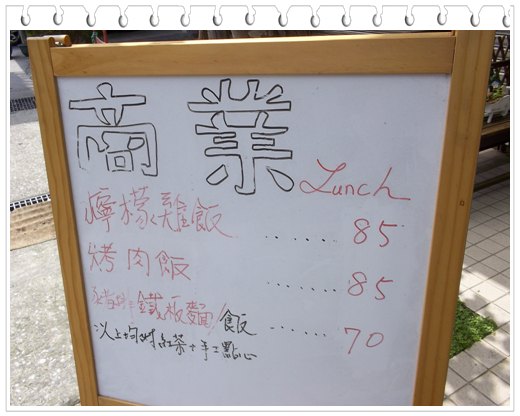 商業 Lunch
檸檬雞飯 ...... 85
烤肉飯 ...... 85
鐵板麵/飯 ...... 70
以上均附紅茶+手工點心